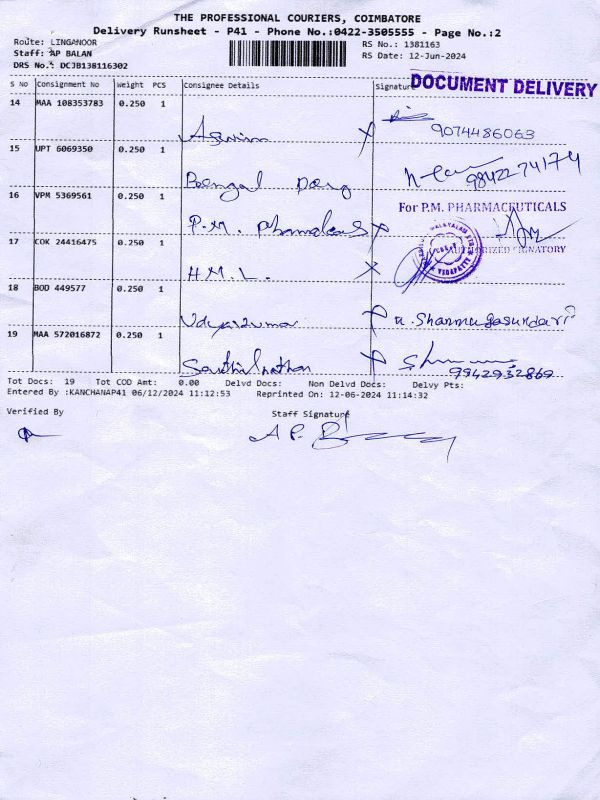 THE PROFESSIONAL COURIERS, COIMBATORE
Delivery Runsheet - P41 - Phone No.:0422-3505555 - Page No.:2
Route: LINGANOOR
Staff: AP BALAN
DRS No.: DCJB138116302
RS No.: 1381163
RS Date: 12-Jun-2024
S No Consignment No Weight PCS Consignee Details Signature
DOCUMENT DELIVERY
14 MAA 108353783 0.250 1
Aswin 9074486063
15 UPT 6069350 0.250 1
Bengal 9842274174
16 VPM 5369561 0.250 1
For P.M. PHARMACEUTICALS
P.M.
17 COK 24416475 0.250 1
AUTHORIZED SIGNATORY
H.M.L.
18 BOD 449577 0.250 1
Udyakumar
19 MAA 572016872 0.250 1
Senthilnathan 9942932869
Tot Docs: 19 Tot COD Amt: 0.00 Delvd Docs: Non Delvd Docs: Delvy Pts:
Entered By :KANCHANAP41 06/12/2024 11:12:53 Reprinted On: 12-06-2024 11:14:32
Verified By Staff Signature